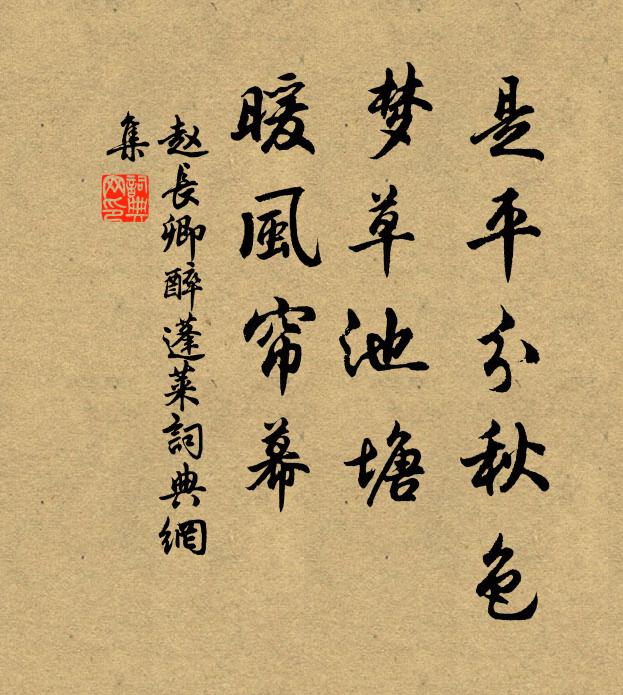 是平分秋色
梦草池塘
暖風帘幕
赵長卿醉蓬莱詞典網
集
詞典
网印